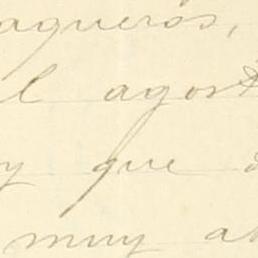 aqueros,
l agost
y que
muy a